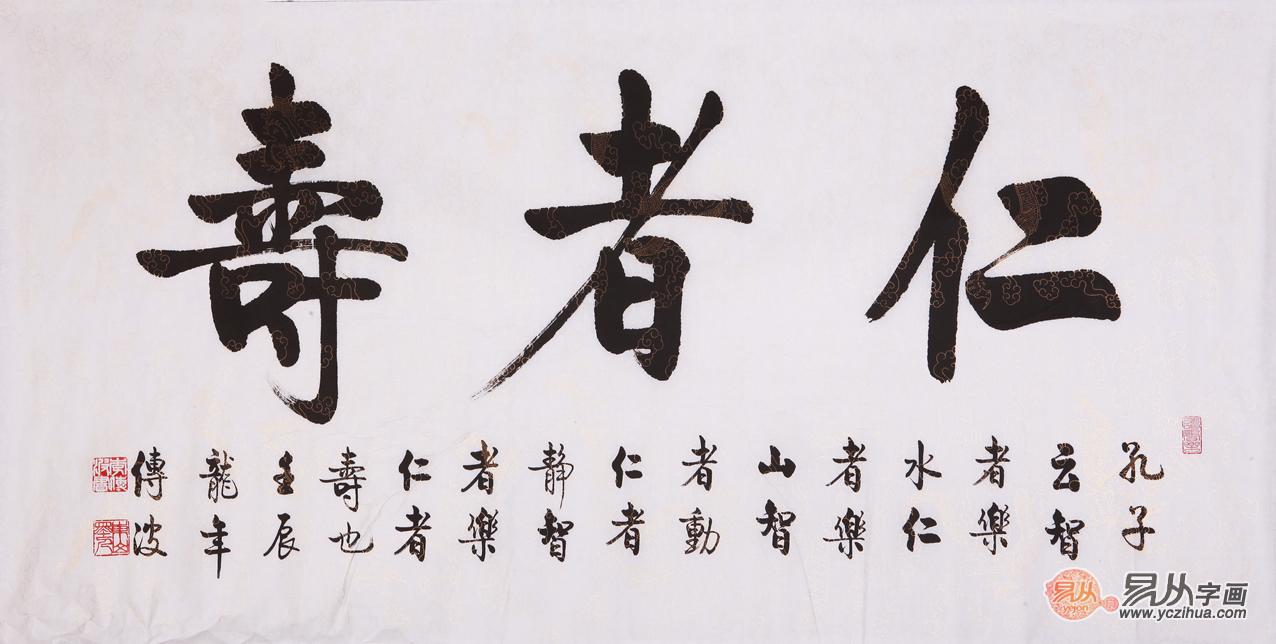 仁者壽
孔子
云智
者樂
水仁
者樂
山智
者動
仁者
静智
者樂
仁者
壽也
壬辰
龍年
傳波
易从字画
yejon
www.yczihua.com